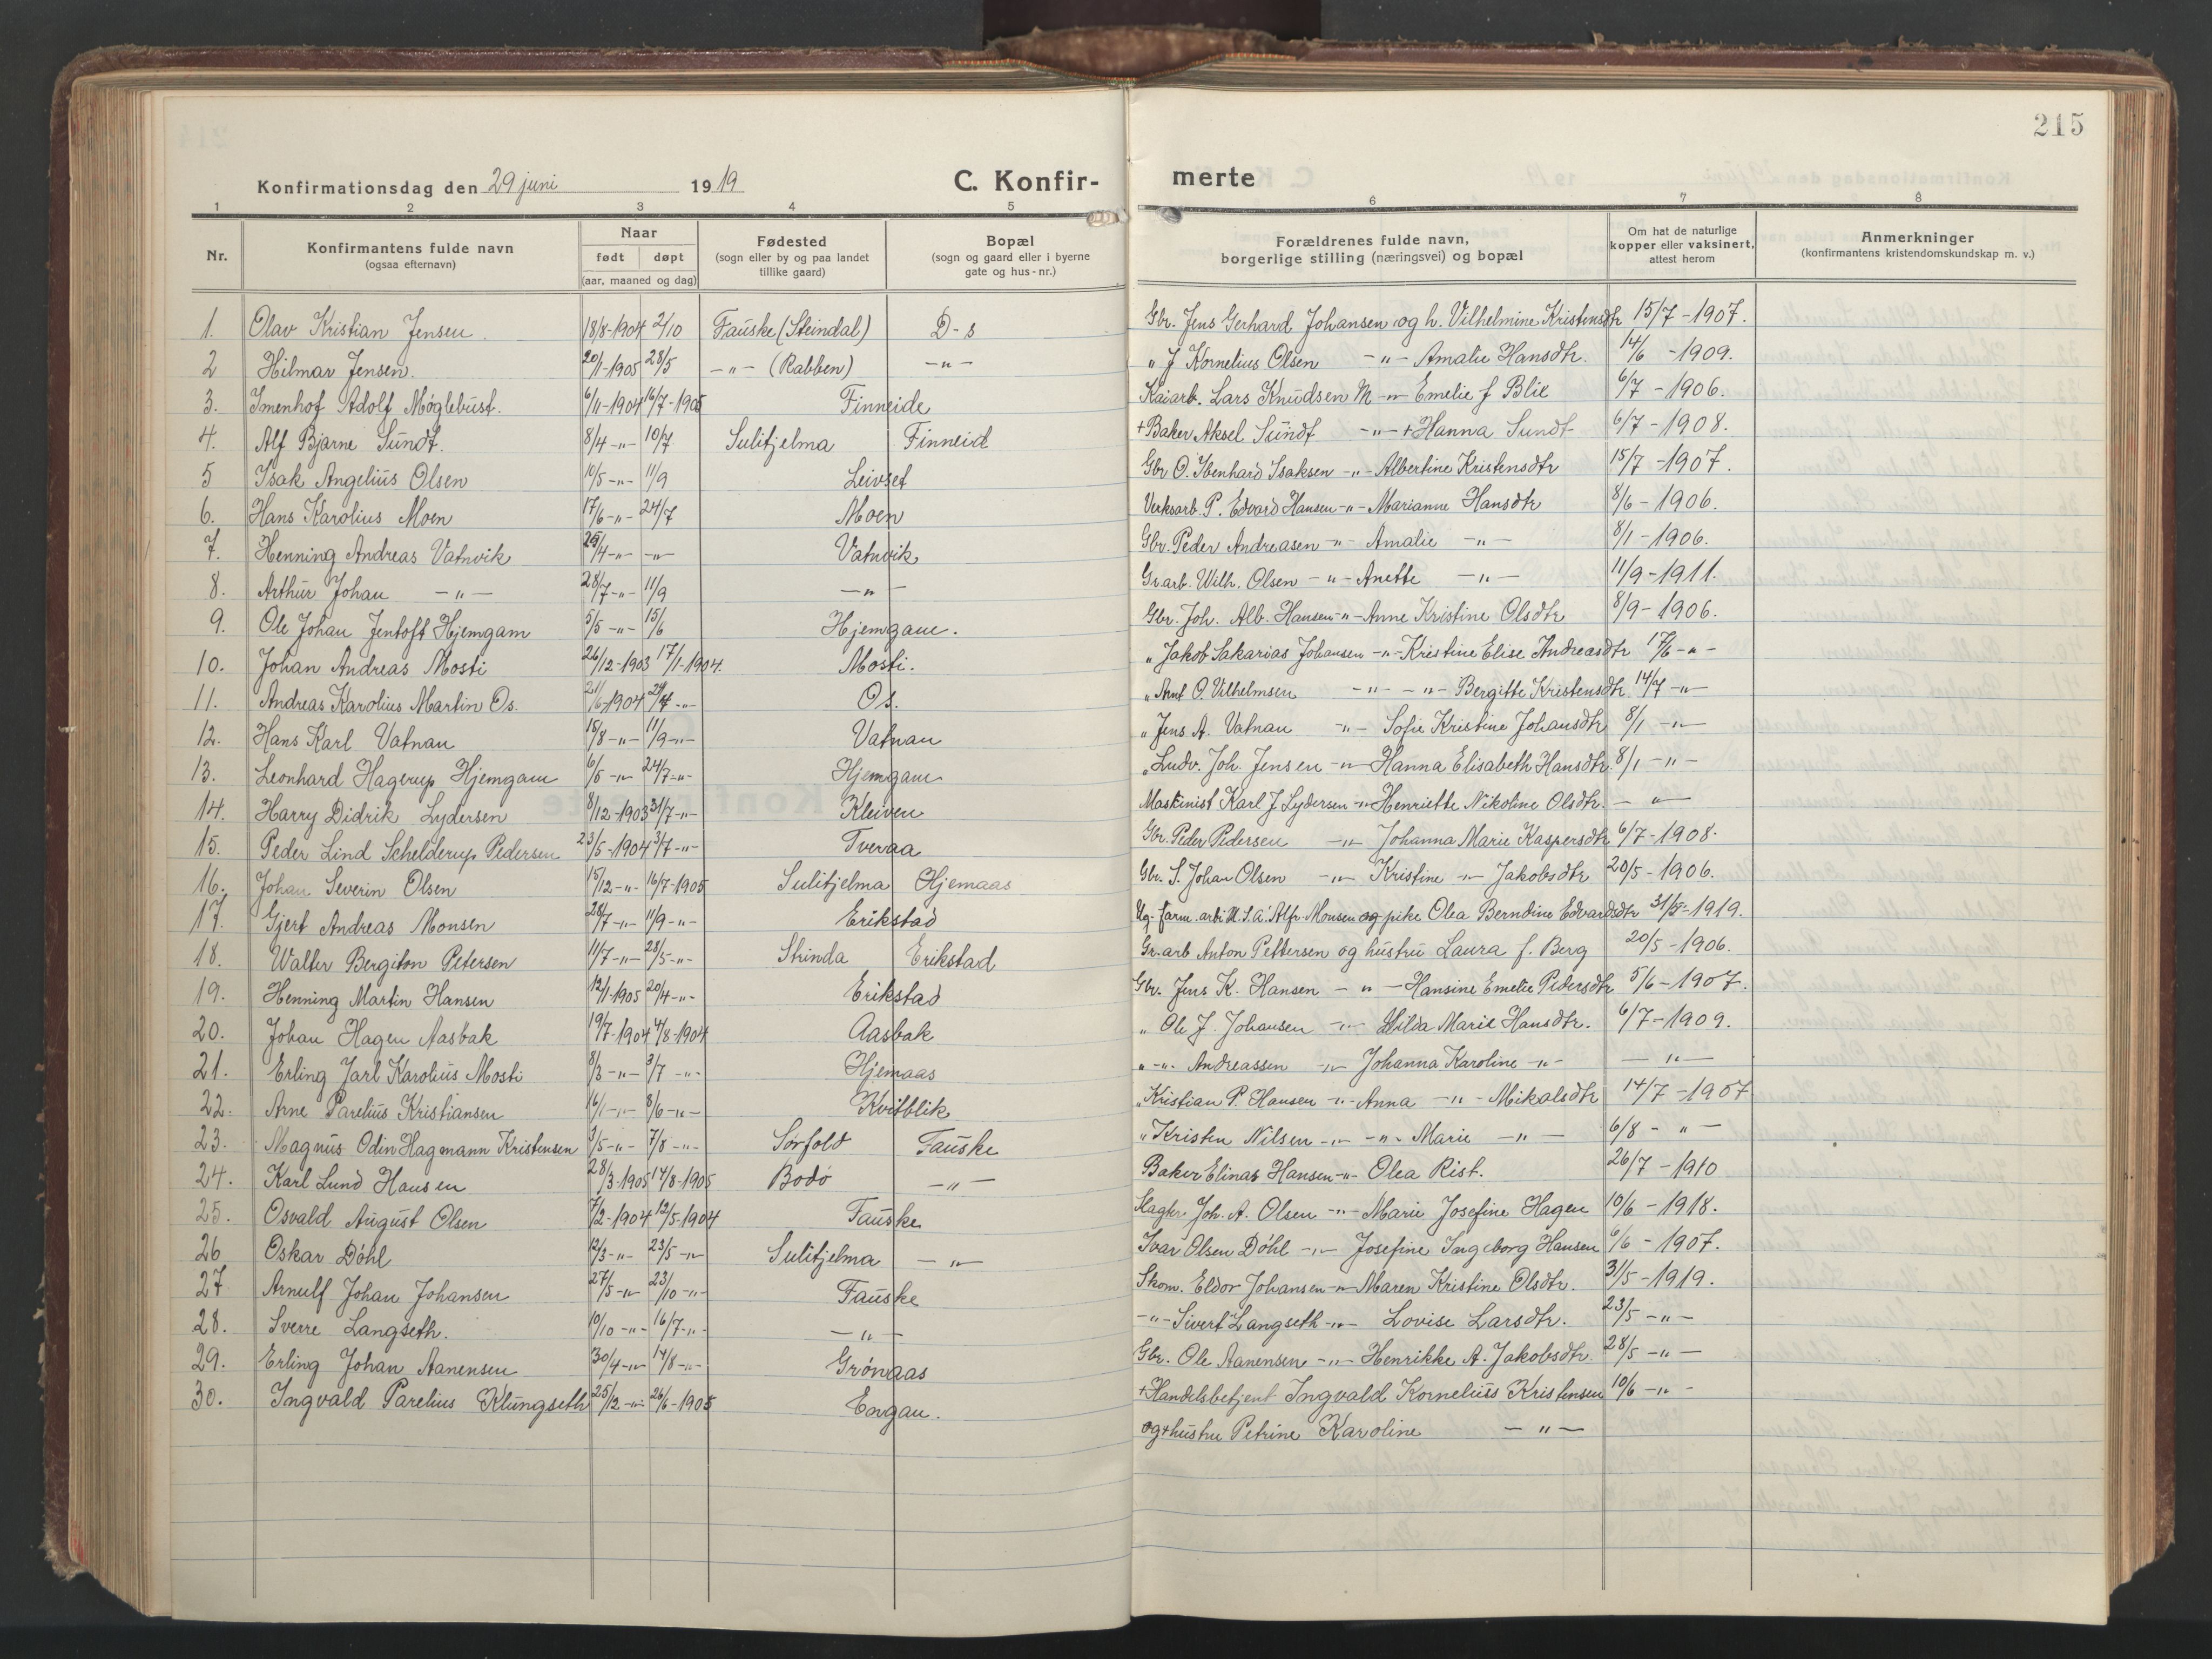 215
Konfirmationsdag den 29 juni 1919 C. Konfir- merte
1 2 3 4 5 6 7 8
Nr. Konfirmantens fulde navn (ogsaa efternavn) Naar født døpt (aar, maaned og dag) Fødested (sogn eller by og paa landet tillike gaard) Bopæl (sogn og gaard eller i byerne gate og hus-nr.) Forældrenes fulde navn, borgerlige stilling (næringsvei) og bopæl Om hat de naturlige kopper eller vaksinert, attest herom Anmerkninger (konfirmantens kristendomskundskap m. v.)
1. Olav Kristian Jensen. 18/8-1904 2/10 Fauske (Steindal) D-s Gbr. Jens Gerhard Johansen og h. Vilhelmine Kristensdtr 15/7-1907.
2 Hilmar Jensen. 20/1-1905 28/5 -"- (Rabben) -"- " J Kornelius Olsen -"- Amalie Hansdtr. 14/6-1909.
3. Imenhof Adolf Møglebust. 6/11-1904 16/7-1905 Finneide Kaiarb. Lars Knudsen M -"- Emelie f Blix 6/7-1906.
4. Alf Bjarne Sundt. 8/4-"- 10/7 Sulitjelma Finneid +Baker Aksel Sundt -"- +Hanna Sundt 6/7-1908.
5 Isak Angelius Olsen 10/5-"- 11/9 Leivset Gbr O. Ibenhard Isaksen -"- Albertine Kristensdtr 15/7-1907.
6. Hans Karolius Moen 17/6-"- 24/7 Moen Verksarb. P. Edvard Hansen -"- Marianne Hansdtr 8/6-1906.
7. Henning Andreas Vatnvik 25/4-"- -"- Vatnvik Gbr. Peder Andreasen -"- Amalie -"- 8/1-1906.
8. Arthur Johan -"- 28/7-"- 11/9 -"- Gr.arb. Wilh. Olsen -"- Anette -"- 11/9-1911.
9. Ole Johan Jentoft Hjemgam 5/5-"- 15/6 Hjemgam. Gbr. Joh. Alb. Hansen -"- Anne Kristine Olsdtr 8/9-1906.
10. Johan Andreas Mosti 26/12-1903 17/1-1904. Mosti. " Jakob Sakarias Johansen -"- Kristine Elise Andreasdtr 17/6-"-
11. Andreas Karolius Martin Os. 21/6-1904 24/7-"- Os. " Arnt O. Vilhelmsen -"- -"- Bergitte Kristensdtr. 14/7-"-
12. Hans Karl Vatnan 15/8-"- 11/9-"- Vatnan " Jens A. Vatnan -"- Sofie Kristine Johansdtr 8/1-"-
13. Leonhard Hagerup Hjemgam 6/5-"- 24/7-"- Hjemgam " Ludv. Joh. Jensen -"- Hanna Elisabeth Hansdtr. 8/1-"-
14. Harry Didrik Lydersen 8/12-1903 31/7-"- Kleiven Maskinist Karl J Lydersen -"- Henriette Nikoline Olsdtr. -"-
15. Peder Lind Schelderup Pedersen 23/5-1904 3/7-"- Tveraa Gbr. Peder Pedersen -"- Johanna Marie Kaspersdtr 6/7-1908.
16. Johan Severin Olsen 15/12-"- 16/7-1905 Sulitjelma Hjemaas Gbr. S. Johan Olsen -"- Kristine -"- Jakobsdtr 20/5-1906.
17. Gjert Andreas Monsen 28/7-"- 11/9-"- Erikstad Ug. farm. arb. i U.S.A. Alfr. Monsen og pike Olea Berndine Edvardsdtr 31/5-1919.
18. Walter Bergiton Petersen 11/7-"- 28/5-"- Strinda Erikstad Gr.arb Anton Pettersen og hustru Laura f. Berg 20/5-1906.
19. Henning Martin Hansen 12/1-1905 20/4-"- Erikstad Gbr. Jens K. Hansen -"- Hansine Emelie Pedersdtr 5/6-1907.
20. Johan Hagen Aasbak 19/7-1904 4/8-1904 Aasbak " Ole J. Johansen -"- Hilda Marie Hansdtr. 6/7-1909.
21. Erling Jarl Karolius Mosti 8/3-"- 3/7-"- Hjemaas "-"- Andreassen -"- Johanna Karoline -"- -"-
22. Arne Parelius Kristiansen 16/1-"- 8/6-"- Kvitblik " Kristian P. Hansen -"- Anna -"- Mikalsdtr 14/7-1907
23. Magnus Odin Hagmann Kristensen 3/5-"- 7/8-"- Sørfold Fauske " Kristen Nilsen -"- -"- Marie -"- 6/8-"-
24. Karl Lund Hansen 28/3-1905 14/8-1905 Bodø -"- Baker Elinas Hansen -"- Olea Rist. 26/7-1910
25. Osvald August Olsen 7/2-1904 12/5-1904 Fauske Joh. A. Olsen -"- Marie Josefine Hagen 10/6-1918.
26 Oskar Døhl 12/3-"- 23/5-"- Sulitjelma -"- Ivar Olsen Døhl -"- Josefine Ingeborg Hansen 6/6-1907.
27 Arnulf Johan Johansen 27/5-"- 23/10-"- Fauske Skom. Eldor Johansen -"- Maren Kristine Olsdtr. 31/5-1919.
28. Sverre Langseth. 10/10-"- 16/7-"- -"- -"- Sivert Langseth -"- Lovise Larsdtr. 23/5-"-
29. Erling Johan Aanensen 30/4-"- 14/8-"- Grønaas Gbr. Ole Aanensen -"- Henrikke A. Jakobsdtr. 28/5-"-
30. Ingvald Parelius Klungseth 25/12-"- 26/6-1905 Engan. +Handelsbetjent Ingvald Kornelius Kristensen 10/6-"-
og+hustru Petrine Karoline -"-